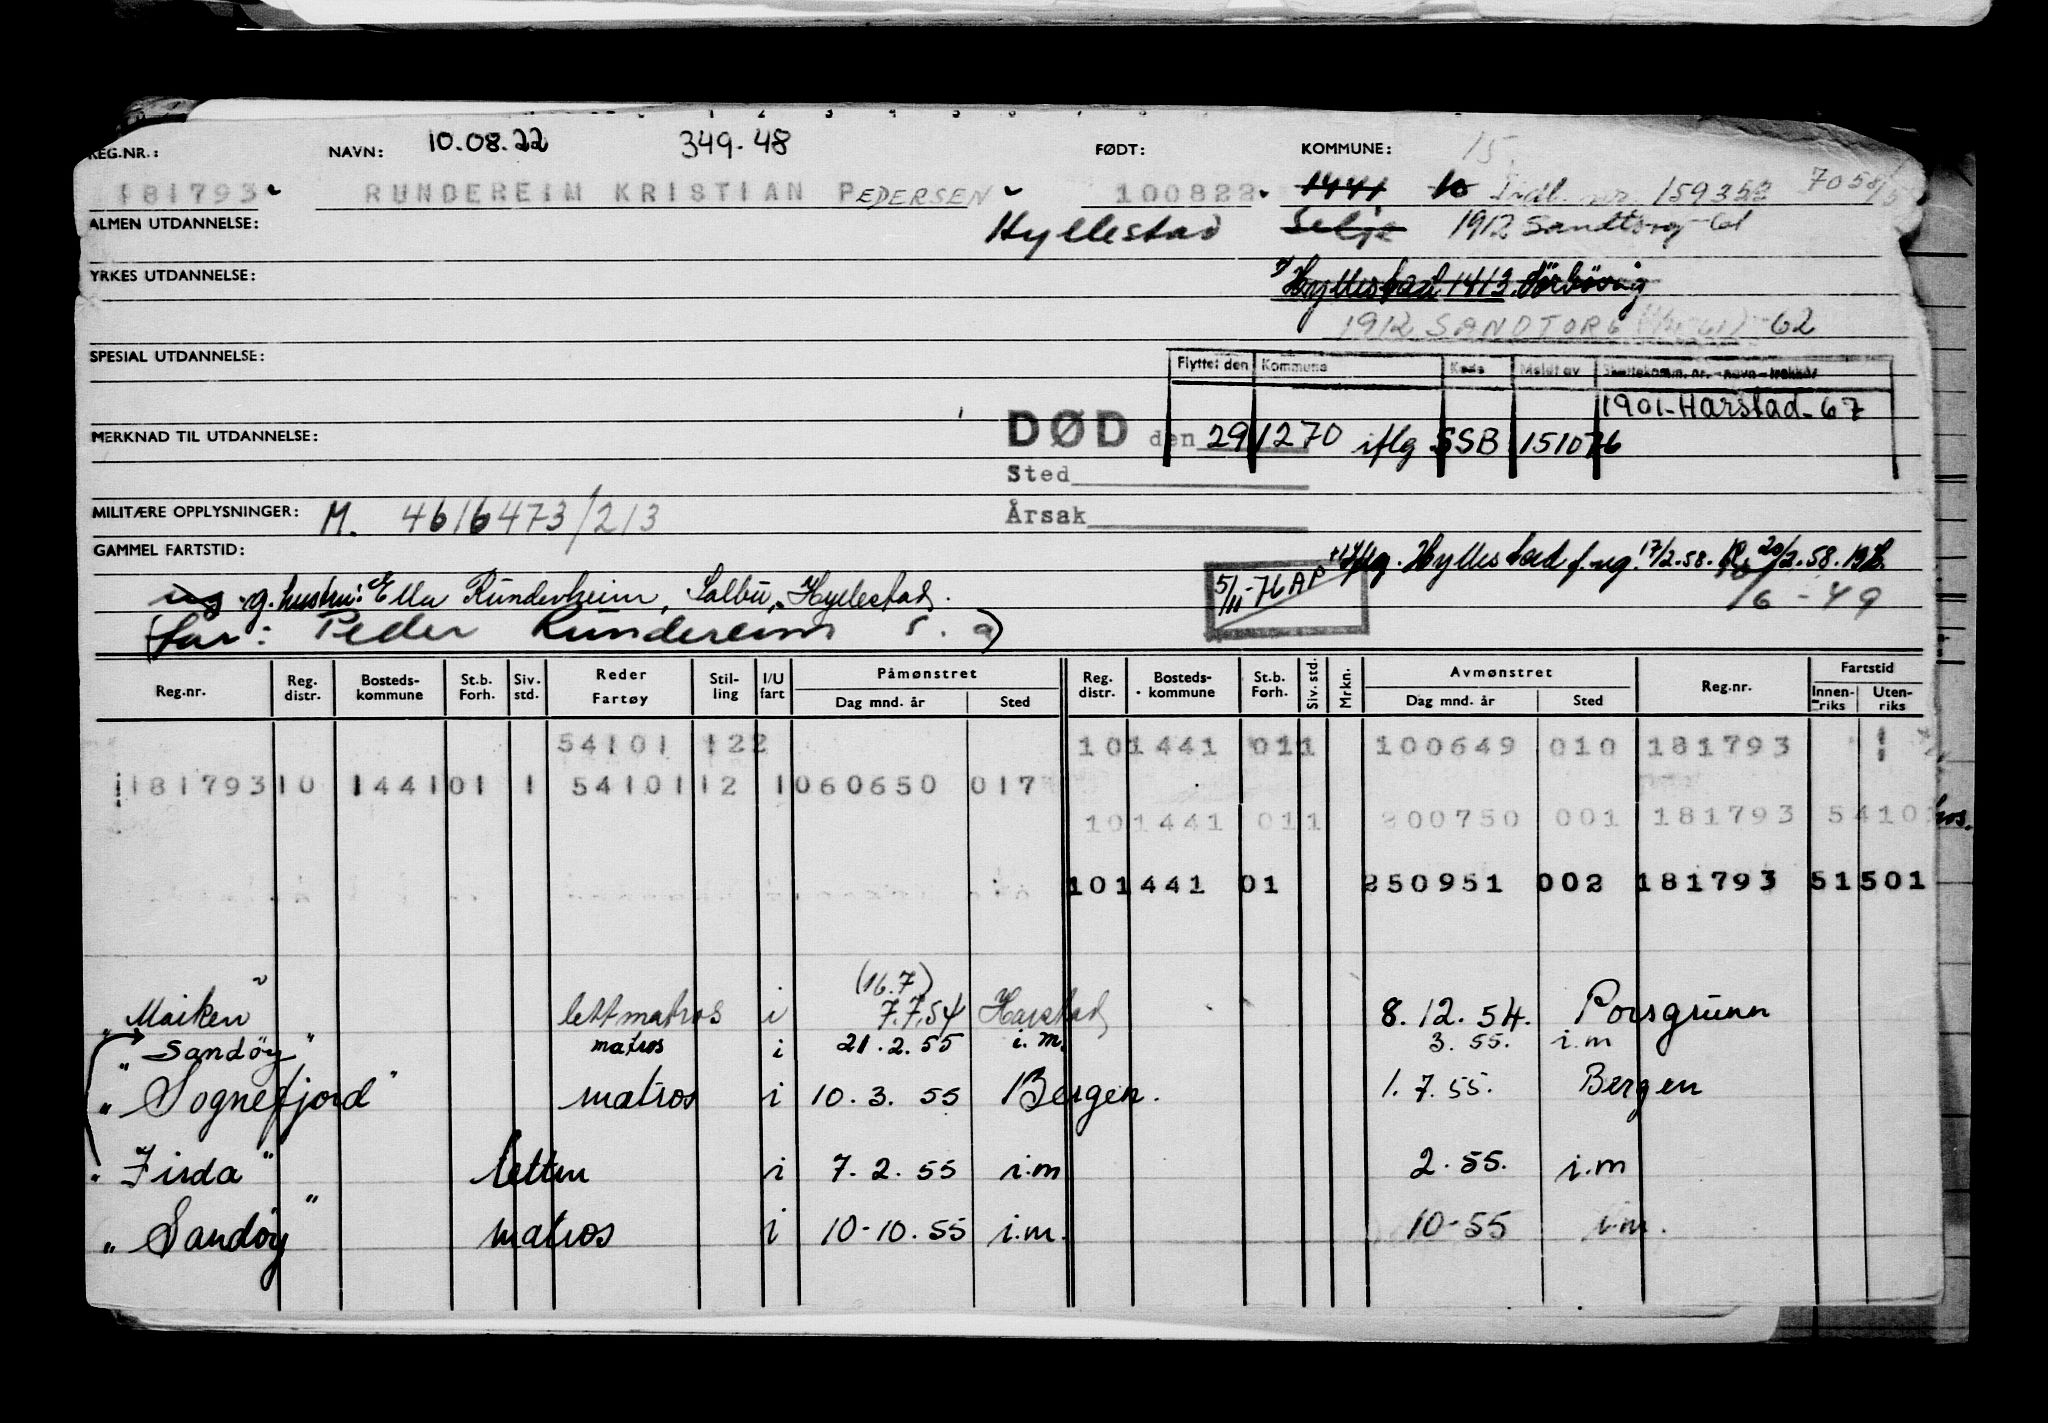 REG.NR.: NAVN: 10.08.22 349.48 FØDT: KOMMUNE: 15
181793 RUNDEREIM KRISTIAN PEDERSEN 100822 1441 10 159352 7058/5
ALMEN UTDANNELSE: Hyllestad Selje 1912 Sandtorg -61
YRKES UTDANNELSE: Hyllestad 1413
1912 SANDTORG -62
SPESIAL UTDANNELSE:
Flyttet den Kommune Kode Meldt av Skattekomm. nr. - navn - trekkår
1901-Harstad-67
MERKNAD TIL UTDANNELSE: DØD den 291270 iflg SSB 151076
Sted
MILITÆRE OPPLYSNINGER: M. 4616473/213 Årsak
GAMMEL FARTSTID: Hyllestad f.reg. 17/2.58. 20/2.58.
g. hustru: Ella Runderheim, Salbu, Hyllestad. 5/11-76 AP /6-49
(far: Peder Rundereim s. a)
Reg.nr. Reg. distr. Bosteds-kommune St.b. Forh. Siv. std. Reder Fartøy Stil-ling I/U fart Påmønstret Dag mnd. år Sted Reg. distr. Bosteds-kommune St.b. Forh. Siv. std. Mrkn. Avmønstret Dag mnd. år Sted Reg.nr. Fartstid Innen-riks Uten-riks
54101 122 101441 011 100649 010 181793
181793 10 144101 1 54101 12 1 060650 017
101441 011 200750 001 181793 5410
101441 01 250951 002 181793 51501
(16.7)
" Maiken " lettmatros i 7.7.54 Harstad 8.12.54. Porsgrunn
" Sandøy " matros i 21.2.55 i.m. 3.55. i.m
" Sognefjord " matros i 10.3.55 Bergen. 1.7.55. Bergen
" Firda " lettm i 7.2.55 i.m 2.55. i.m
" Sandøy " matros i 10-10.55 i.m. 10-55 i.m.